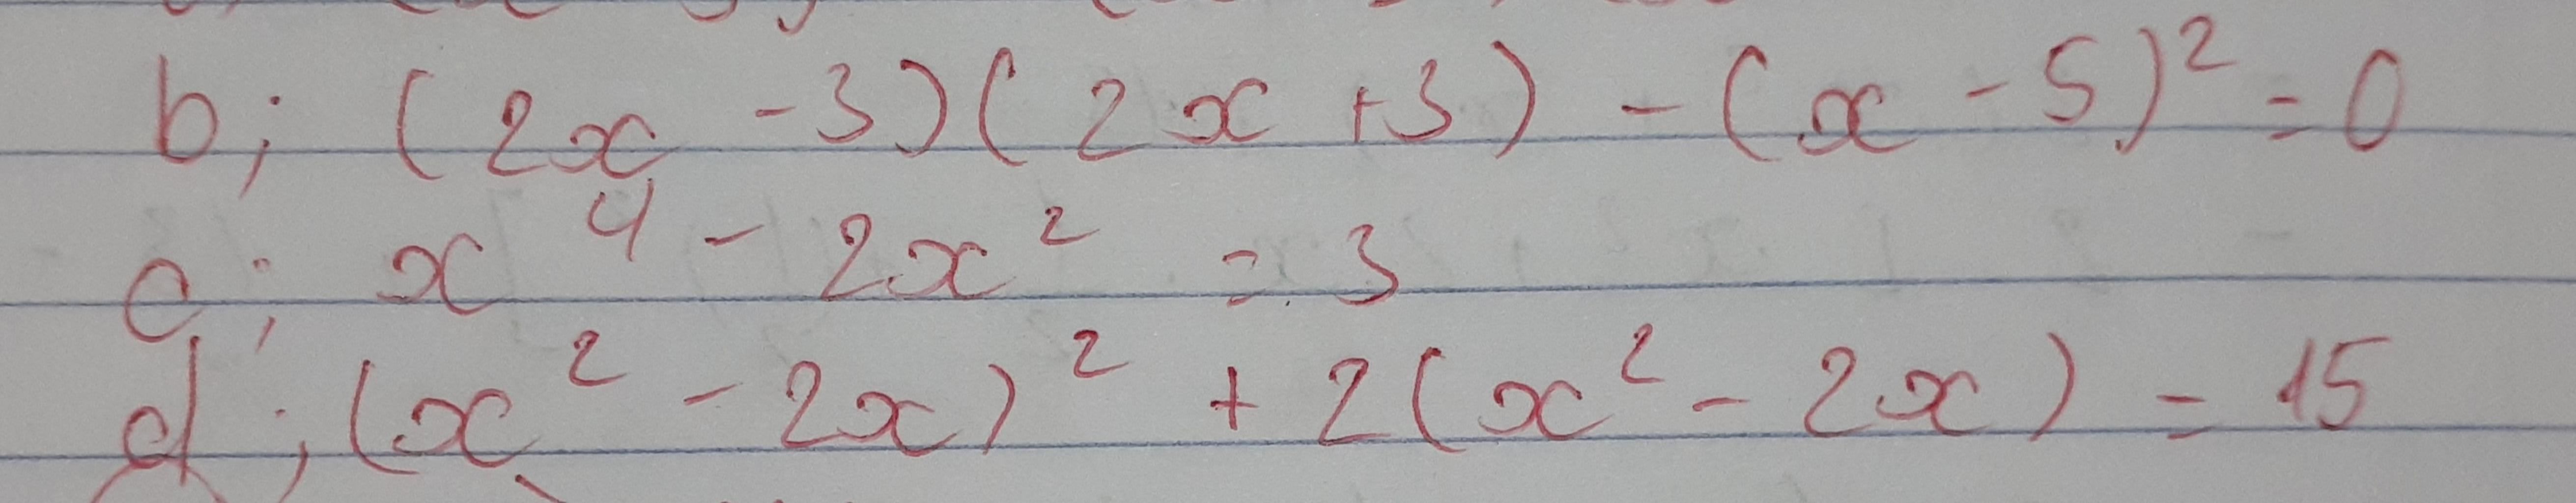 b; (2x - 3)(2x + 3) - (x - 5)² = 0
c; x⁴ - 2x² = 3
d; (x² - 2x)² + 2(x² - 2x) = 15